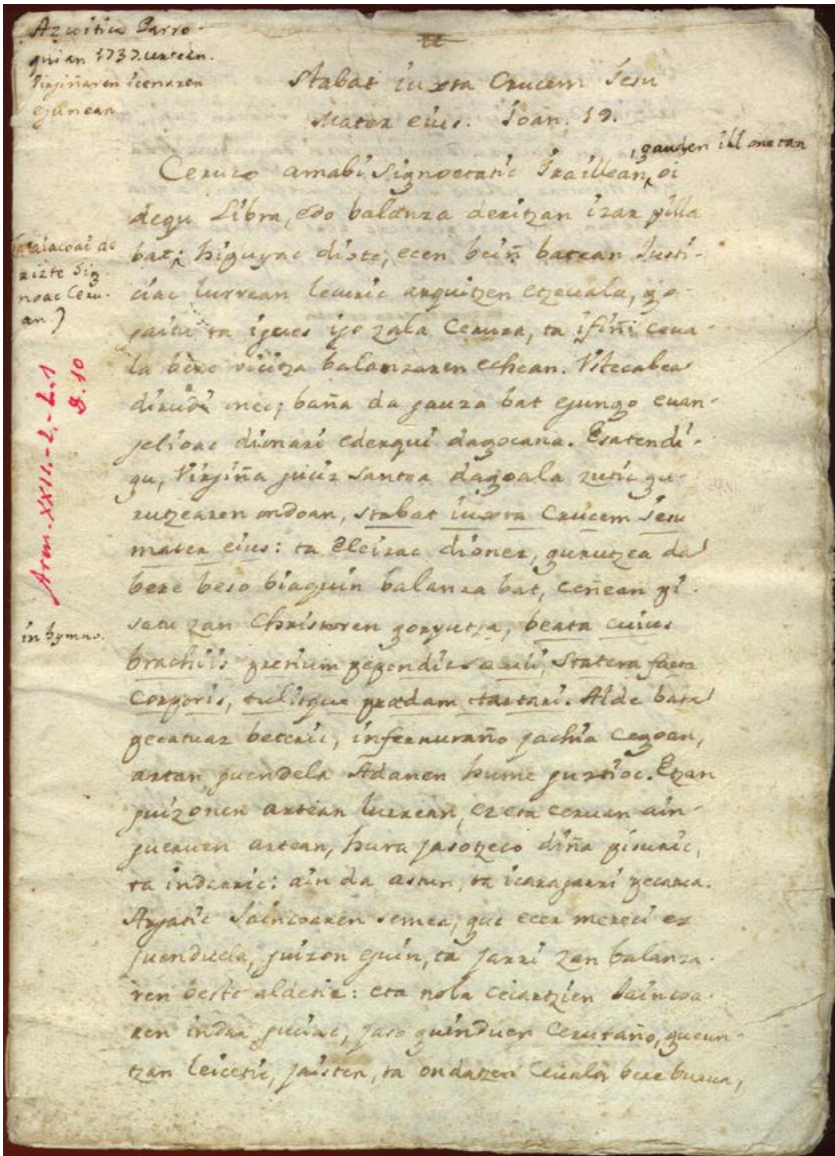 Azcoitico Parro-
quian 1737. urtean.
Virjiñaren icenaren
egunean
Stabat iuxta Crucem Jesu
Mater eius. Joan. 19.
Ceruco amabi Signoetatic Iraillean, gauden ill onetan, oi
degu Libra, edo balanza deritzan izar pilla
bat; diote, ecen beiñ batean Justi-
ciac lurrean lecuric arquitzen etzeuala,
ta iges ijo zala Cerura, ta ifiñi ceua-
la bere vicitza balanzaren echean. Vitecabea
dirudi onec; baña da gauza bat egungo euan-
jelioac dionari ederqui dagocana. Esaten di-
gu, Virjiña guciz Santea dagoala zutic gu-
rutzearen ondoan, stabat iuxta Crucem Jesu
mater eius: ta Eleizac dionez, gurutzea da
bere beso biaquin balanza bat, ceñean pi-
satu zan Christoren gorputza, beata cuius
brachiis pretium pependit saeculi, Statera facta
Corporis, tulitque praedam tartari. Alde batetic
pecatuaz beteric, infernuraño jachia cegoan,
artan guendela Adanen hume guztioc. Etzan
guizonen artean lurrean, ez eta ceruan ain-
gueruen artean, hura jasotzeco diña pisuric,
ta indarric: ain da astun, ta icaragarri pecatua.
Argatic Jaincoaren semea, guc ecer mereci ez
guenduela, guizon eguin, ta jarri zan balanza-
ren beste aldetic: eta nola Jaincoa-
ren indar guciac, jaso guinduen Ceruraño, gueun-
tzan leicetic, jaisten, ta ondatzen ceuala bere burua,
deritzte Sig-
noac Ceru-
an.)
Arm. XXII.-2.-L.1
D.10
in hymno.